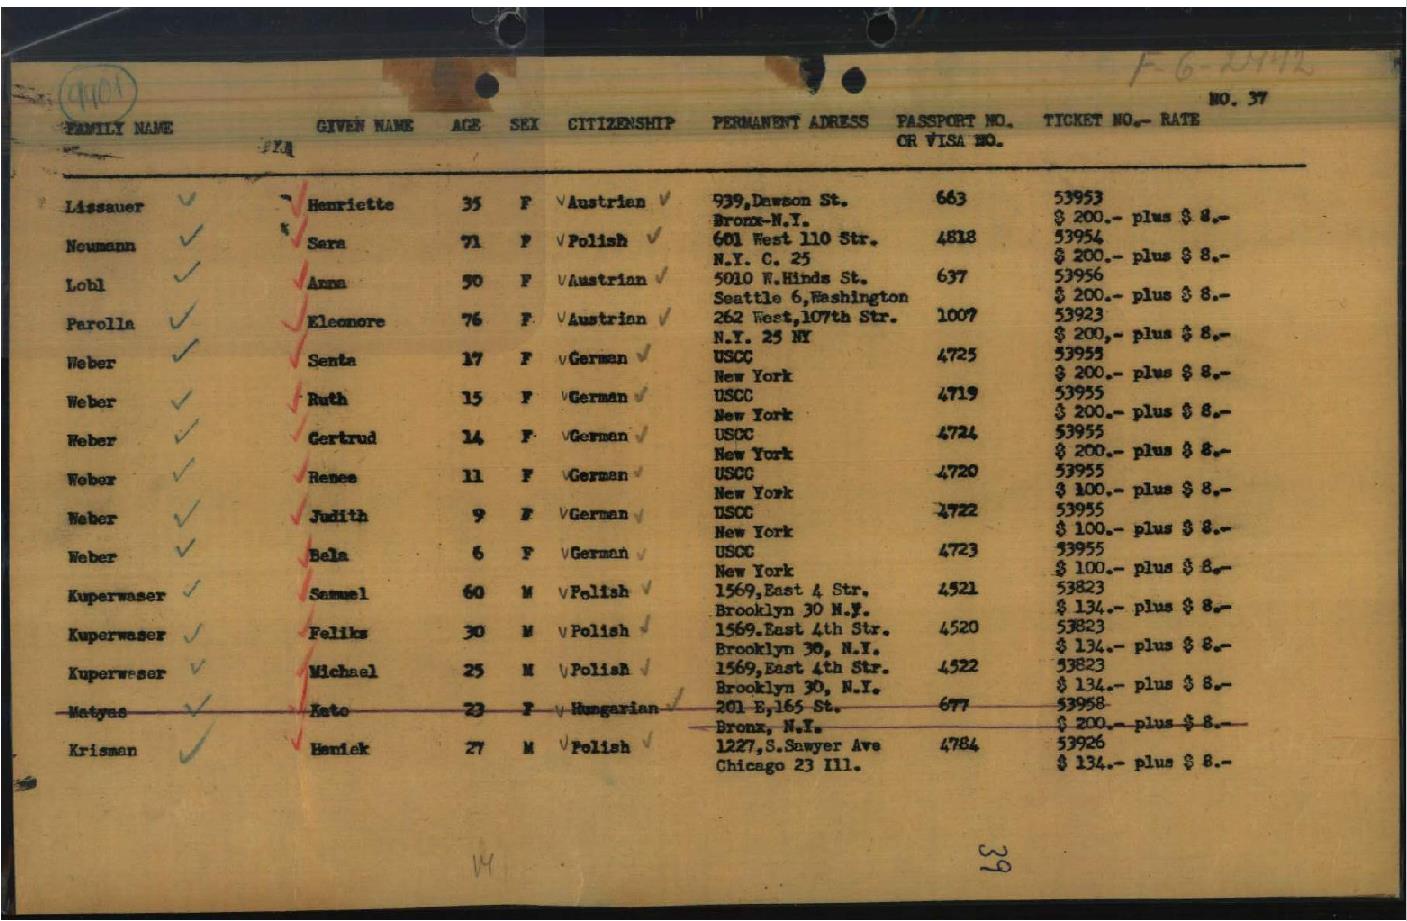 9901
F-6-2442
NO. 37
FAMILY NAME GIVEN NAME AGE SEX CITIZENSHIP PERMANENT ADRESS PASSPORT NO. TICKET NO.- RATE
OR VISA NO.
Lissauer Henriette 35 F Austrian 939,Dawson St. 663 53953
Bronx-N.Y. $ 200.- plus $ 8.-
Neumann Sara 71 F Polish 601 West 110 Str. 4818 53954
N.Y. C. 25 $ 200.- plus $ 8.-
Lobl Anna 50 F Austrian 5010 W.Hinds St. 637 53956
Seattle 6,Washington $ 200.- plus $ 8.-
Parolla Eleonore 76 F Austrian 262 West,107th Str. 1007 53923
N.Y. 25 NY $ 200,- plus $ 8.-
Weber Senta 17 F German USCC 4725 53955
New York $ 200.- plus $ 8.-
Weber Ruth 15 F German USCC 4719 53955
New York $ 200.- plus $ 8.-
Weber Gertrud 14 F German USCC 4724 53955
New York $ 200.- plus $ 8.-
Weber Renee 11 F German USCC 4720 53955
New York $ 100.- plus $ 8.-
Weber Judith 9 F German USCC 4722 53955
New York $ 100.- plus $ 8.-
Weber Bela 6 F German USCC 4723 53955
New York $ 100.- plus $ 8.-
Kuperwaser Samuel 60 M Polish 1569,East 4 Str. 4521 53823
Brooklyn 30 N.Y. $ 134.- plus $ 8.-
Kuperwaser Feliks 30 M Polish 1569.East 4th Str. 4520 53823
Brooklyn 30, N.Y. $ 134.- plus $ 8.-
Kuperwaser Michael 25 M Polish 1569,East 4th Str. 4522 53823
Brooklyn 30, N.Y. $ 134.- plus $ 8.-
Matyas Kato 23 F Hungarian 201 E,165 St. 677 53958
Bronx, N.Y. $ 200.- plus $ 8.-
Krisman Heniek 27 M Polish 1227,S.Sawyer Ave 4784 53926
Chicago 23 Ill. $ 134.- plus $ 8.-
14
39